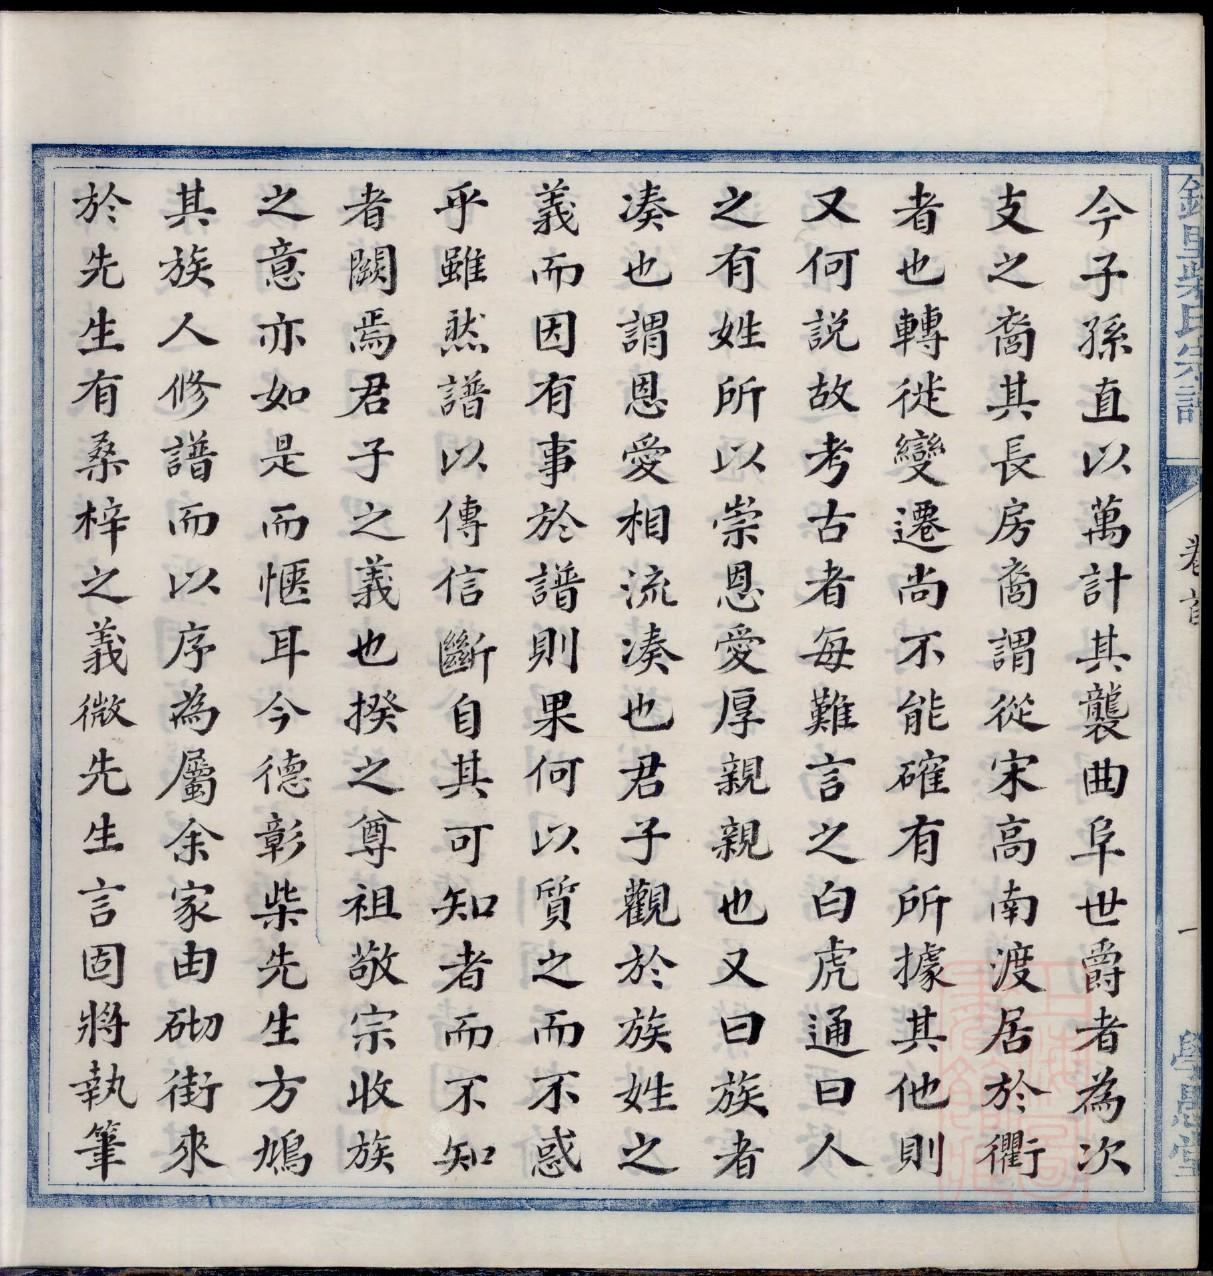 今子孫直以萬計其襲曲阜世爵者為次
支之裔其長房裔謂從宋高南渡居於衢
者也轉徙變遷尚不能確有所據其他則
又何説故考古者每難言之白虎通曰人
之有姓所以崇恩愛厚親親也又曰族者
凑也謂恩愛相流凑也君子觀於族姓之
義而因有事於譜則果何以質之而不惑
乎雖然譜以傳信斷自其可知者而不知
者闕焉君子之義也揆之尊祖敬宗收族
之意亦如是而愜耳今德彰柴先生方鳩
其族人修譜而以序為屬余家由砌街來
於先生有桑梓之義微先生言固將執筆
柴氏宗譜
卷首
一
學思堂